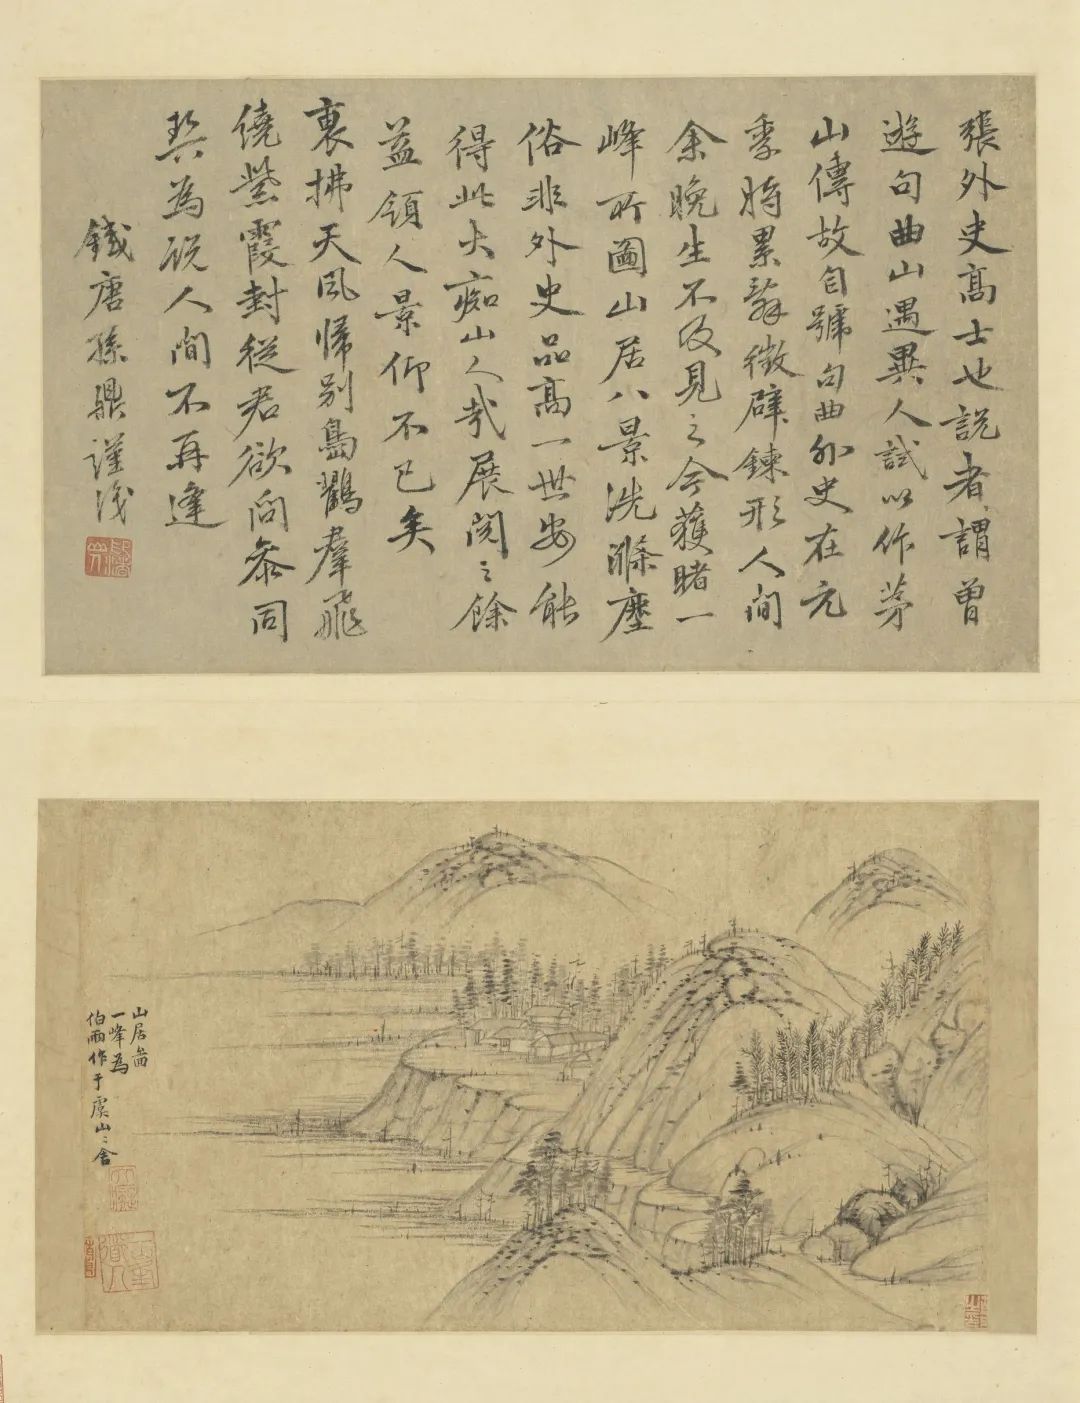 張外史高士也說者謂曽
遊句曲山遇異人試以作茅
山傳故自號句曲外史在元
季時累辭徵辟鍊形人間
余晚生不及見之今獲睹一
峰所圖山居八景洗滌塵
俗非外史品高一世安能
得此大痴山人哉展閱之餘
益領人景仰不已矣
裏拂天風歸別島鸛羣飛
繞紫霞封從君欲問參同
契為說人間不再逢
錢唐孫鼎謹識
山居啚
一峰為
伯雨作于虞山之舍